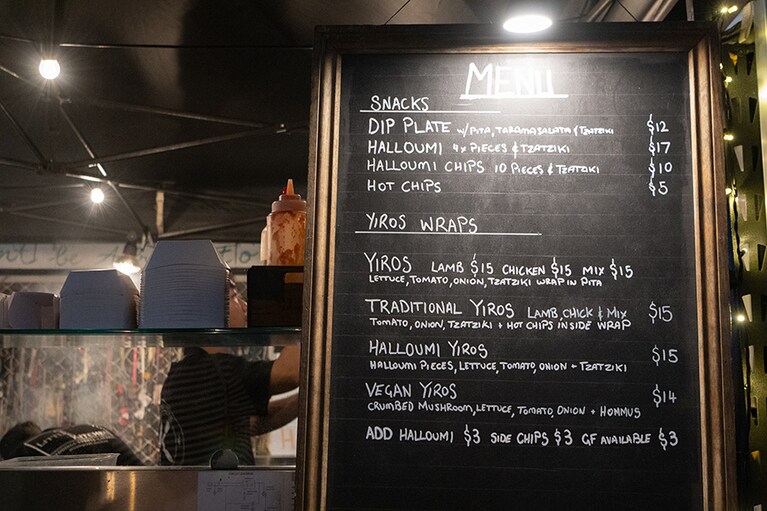 MENU
SNACKS
DIP PLATE w/PITA, TARAMASALATA & TZATZIKI $12
HALLOUMI 4x PIECES & TZATZIKI $17
HALLOUMI CHIPS 10 PIECES & TZATZIKI $10
HOT CHIPS $5
YIROS WRAPS
YIROS LAMB $15 CHICKEN $15 MIX $15
LETTUCE, TOMATO, ONION, TZATZIKI WRAP IN PITA
TRADITIONAL YIROS LAMB, CHICK & MIX $15
TOMATO, ONION, TZATZIKI + HOT CHIPS INSIDE WRAP
HALLOUMI YIROS $15
HALLOUMI PIECES, LETTUCE, TOMATO, ONION + TZATZIKI
VEGAN YIROS $14
CRUMBED MUSHROOM, LETTUCE, TOMATO, ONION + HOMMUS
ADD HALLOUMI $3 SIDE CHIPS $3 GF AVAILABLE $3